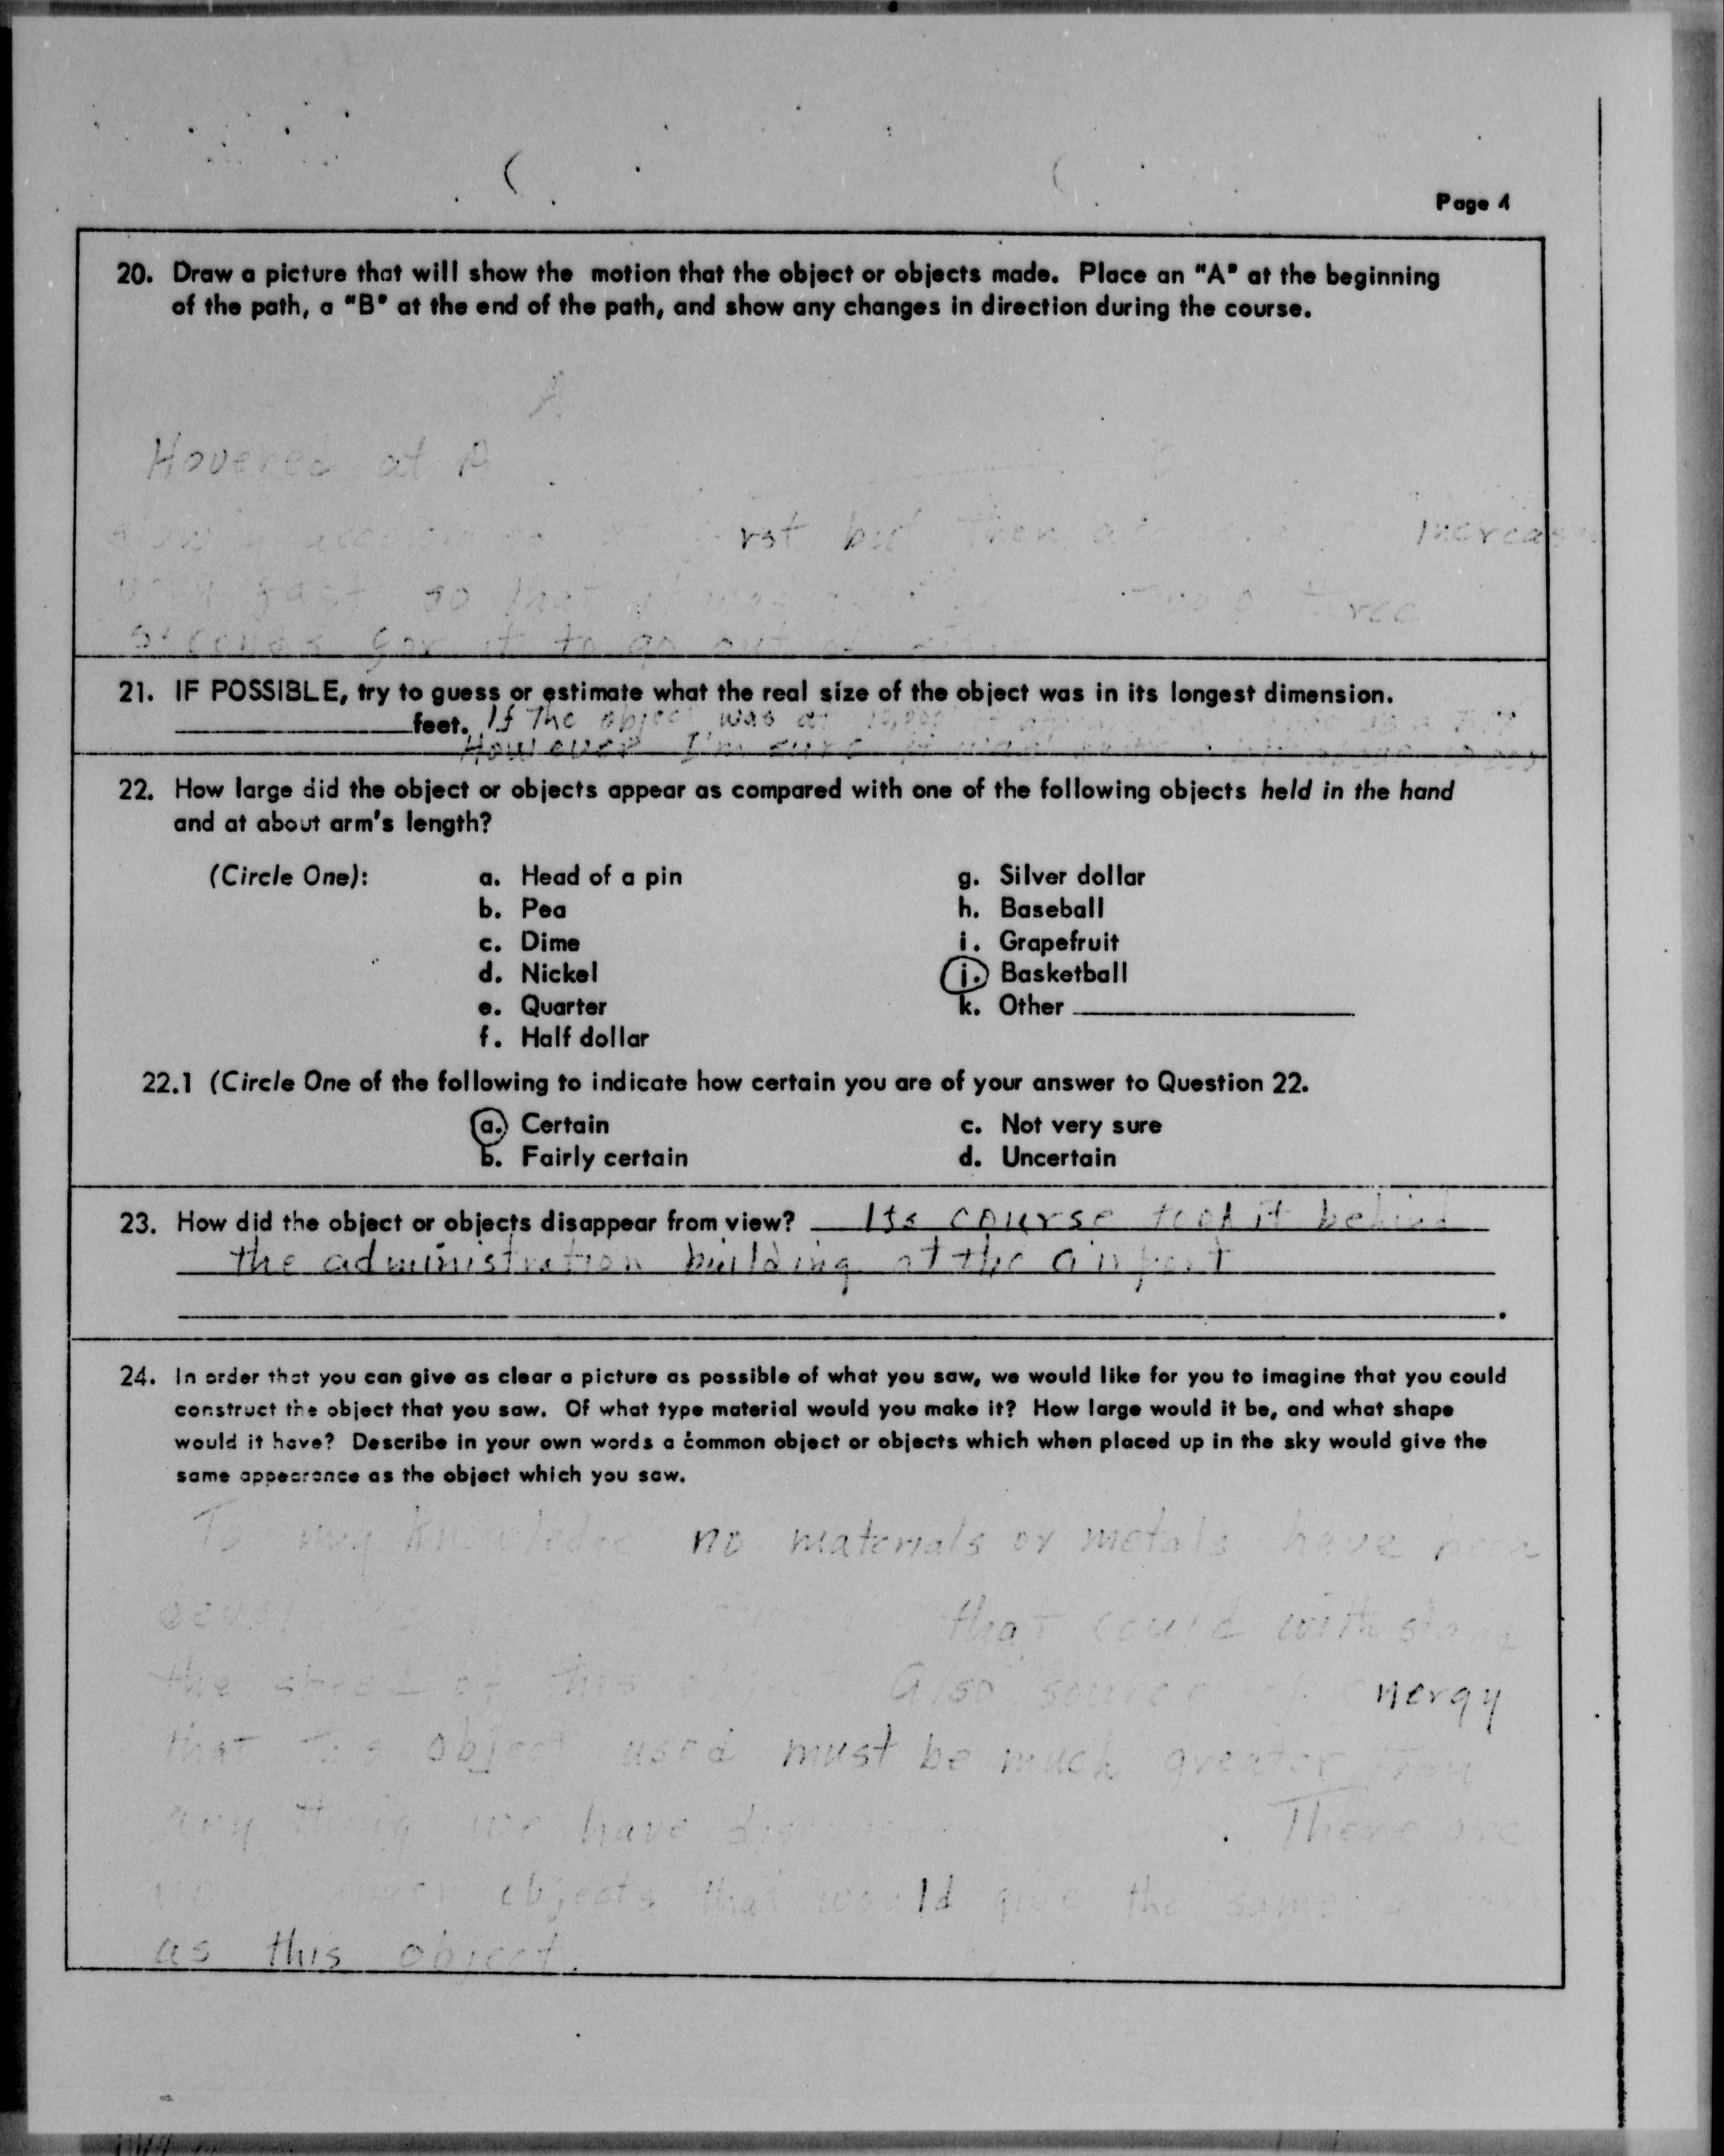 Page 4
20. Draw a picture that will show the motion that the object or objects made. Place an "A" at the beginning
of the path, a "B" at the end of the path, and show any changes in direction during the course.
A
Hovered at A
but then increas
very fast so that it was two or three
seconds for it to go out
21. IF POSSIBLE, try to guess or estimate what the real size of the object was in its longest dimension.
feet. If The object was at 10,000
However I'm sure it
22. How large did the object or objects appear as compared with one of the following objects held in the hand
and at about arm's length?
(Circle One): a. Head of a pin g. Silver dollar
b. Pea h. Baseball
c. Dime i. Grapefruit
d. Nickel j. Basketball
e. Quarter k. Other
f. Half dollar
22.1 (Circle One of the following to indicate how certain you are of your answer to Question 22.
a. Certain c. Not very sure
b. Fairly certain d. Uncertain
23. How did the object or objects disappear from view? Its course took it behind
the administration building at the airport
24. In order that you can give as clear a picture as possible of what you saw, we would like for you to imagine that you could
construct the object that you saw. Of what type material would you make it? How large would it be, and what shape
would it have? Describe in your own words a common object or objects which when placed up in the sky would give the
same appearance as the object which you saw.
To my knowledge no materials or metals have been
that could withstand
the speed of this Also source of energy
that this object used must be much greater than
any thing we have There are
no objects that would give the same
as this object.